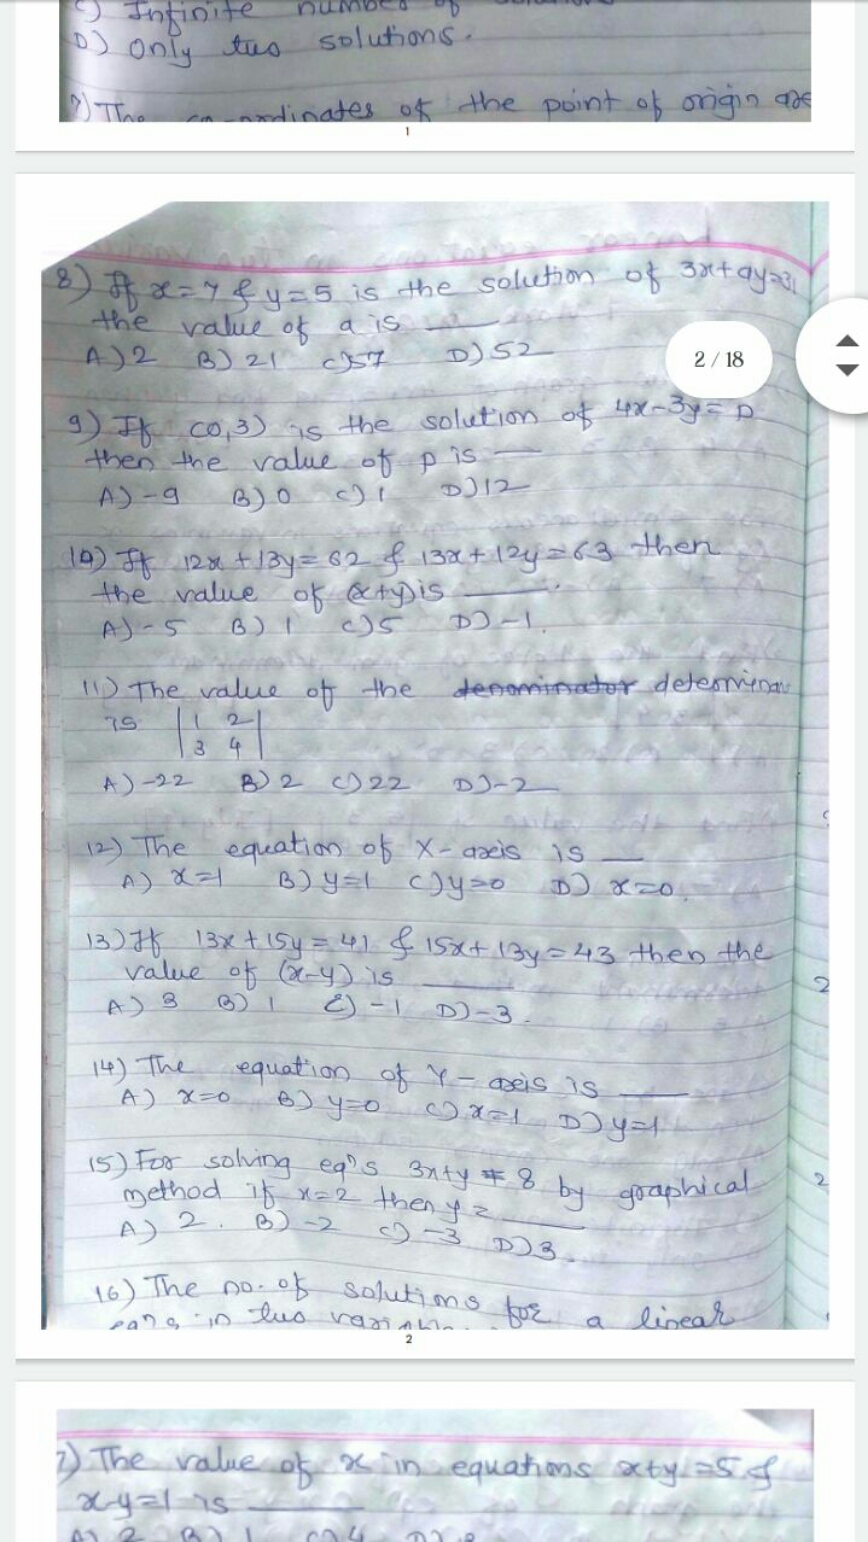 C) Infinite number of solutions
D) Only two solutions.
7) The co-ordinates of the point of origin are
1
8) If x=7 & y=5 is the solution of 3x+ay=31
the value of a is ____
A) 2 B) 21 C) 57 D) 52
2 / 18
9) If (0,3) is the solution of 4x-3y= p
then the value of p is ___
A) -9 B) 0 C) 1 D) 12
10) If 12x + 13y = 62 & 13x + 12y = 63 then
the value of (x+y) is ____.
A) -5 B) 1 C) 5 D) -1.
11) The value of the denominator determinan
is |1 2|
|3 4|
A) -22 B) 2 C) 22 D) -2
12) The equation of X-axis is __
A) x=1 B) y=1 C) y=0 D) x=0.
13) If 13x + 15y = 41 & 15x + 13y = 43 then the
value of (x-y) is ____
A) 3 B) 1 C) -1 D) -3.
14) The equation of Y-axis is ____
A) x=0 B) y=0 C) x=1 D) y=1
15) For solving eqn's 3x+y = 8 by graphical
method if x=2 then y = ____
A) 2. B) -2 C) -3 D) 3.
16) The no. of solutions for a linear
eqns in two
2
7) The value of x in equations x+y =5 &
x-y=1 is ____
A) 3 B) 1 C) 4